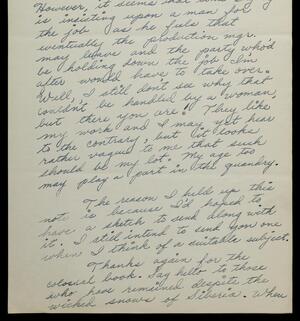 However, it seems that
is insisting upon a man for
the job as he feels that
eventually the production mgr.
may leave and the party who'd
be holding down the job I'm
after would have to take over.
Well, I still don't see why that
couldn't be handled by a woman,
but there you are! They like
my work and I may yet hear
to the contrary, but it looks
rather vague to me that such
should be my lot. My age too
may play a part in the quandry.
The reason I held up this
note is because I'd hoped to
have a sketch to send along with
it. I still intend to send you one
when I think of a suitable subject.
Thanks again for the
colossal book. Say hello to those
who have remained despite the
wicked snows of Siberia. When